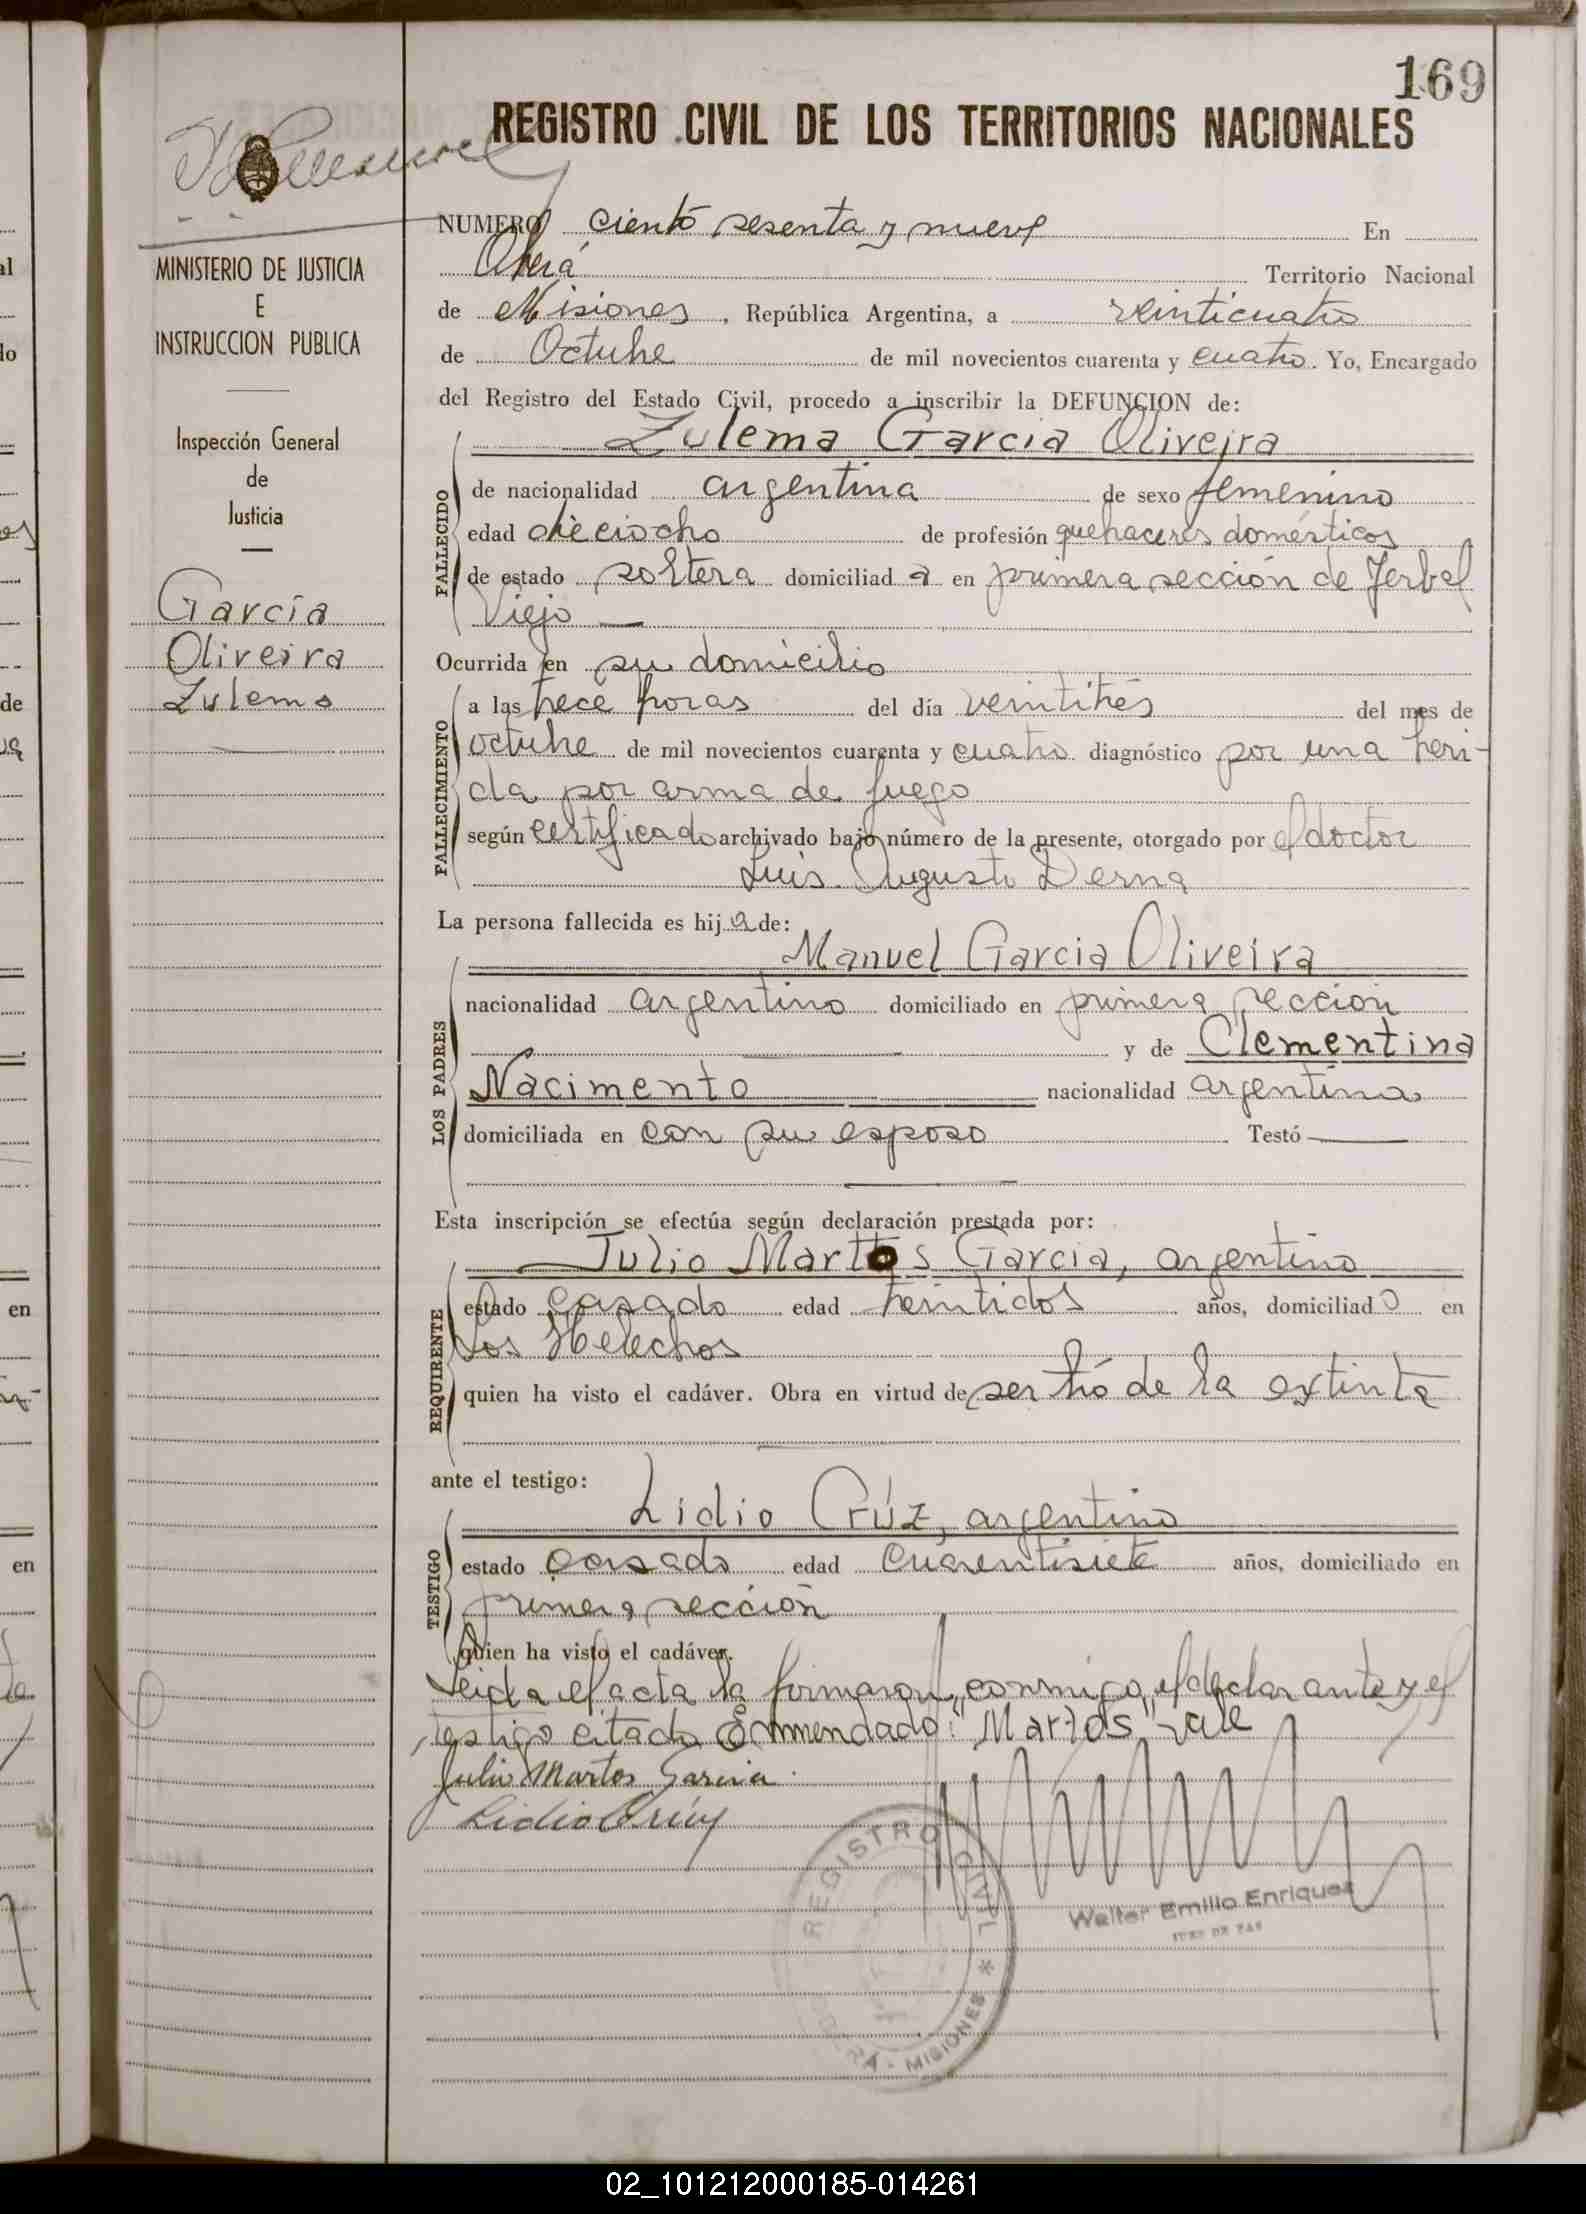 169
REGISTRO CIVIL DE LOS TERRITORIOS NACIONALES
MINISTERIO DE JUSTICIA
E
INSTRUCCION PUBLICA
Inspección General
de
Justicia
García
Oliveira
Zulema
NUMERO ciento sesenta y nueve En
Oberá Territorio Nacional
de Misiones, República Argentina, a veinticuatro
de Octubre de mil novecientos cuarenta y cuatro. Yo, Encargado
del Registro del Estado Civil, procedo a inscribir la DEFUNCION de:
Zulema Garcia Oliveira
FALLECIDO
de nacionalidad argentina de sexo femenino
edad dieciocho de profesión quehaceres domésticos
de estado soltera domiciliad a en primera sección de Yerbal
Viejo
Ocurrida en su domicilio
FALLECIMIENTO
a las trece horas del día veintitrés del mes de
octubre de mil novecientos cuarenta y cuatro diagnóstico por una heri-
da por arma de fuego
según certificado archivado bajo número de la presente, otorgado por el doctor
Luis Augusto Derna
La persona fallecida es hij a de:
LOS PADRES
Manuel Garcia Oliveira
nacionalidad argentino domiciliado en primera sección
y de Clementina
Nacimento nacionalidad argentina
domiciliada en con su esposo Testó
Esta inscripción se efectúa según declaración prestada por:
REQUIRENTE
Julio Martos Garcia, argentino
estado casado edad treintidos años, domiciliad o en
Los Helechos
quien ha visto el cadáver. Obra en virtud de ser tío de la extinta
ante el testigo:
TESTIGO
Lidio Crúz, argentino
estado casado edad cuarentisiete años, domiciliado en
primera sección
quien ha visto el cadáver.
Leida el acta la firmaron conmigo, el declarante y el
testigo citado Enmendado: "Martos" Vale
Julio Martos Garcia.
Lidio Crúz
REGISTRO CIVIL * MISIONES
Walter Emilio Enriquez
JUEZ DE PAZ
02_101212000185-014261